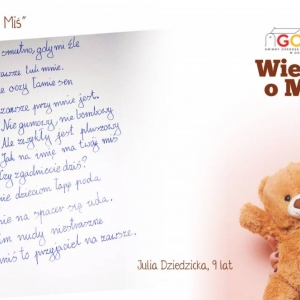 Miś"
GO
Wie
o M
smutno, gdy mi źle
zawsze lubi mnie.
oczy łamie sen
zawsze przy mnie jest.
Nie gumowy, nie bombowy
Ale zwykły jest pluszowy
Jak na imię ma twój miś
Czy zgadniecie dziś?
dzieciom łapę poda
nie na spacer się uda.
nudy niestraszne
miś to przyjaciel na zawsze.
Julia Dziedzicka, 9 lat